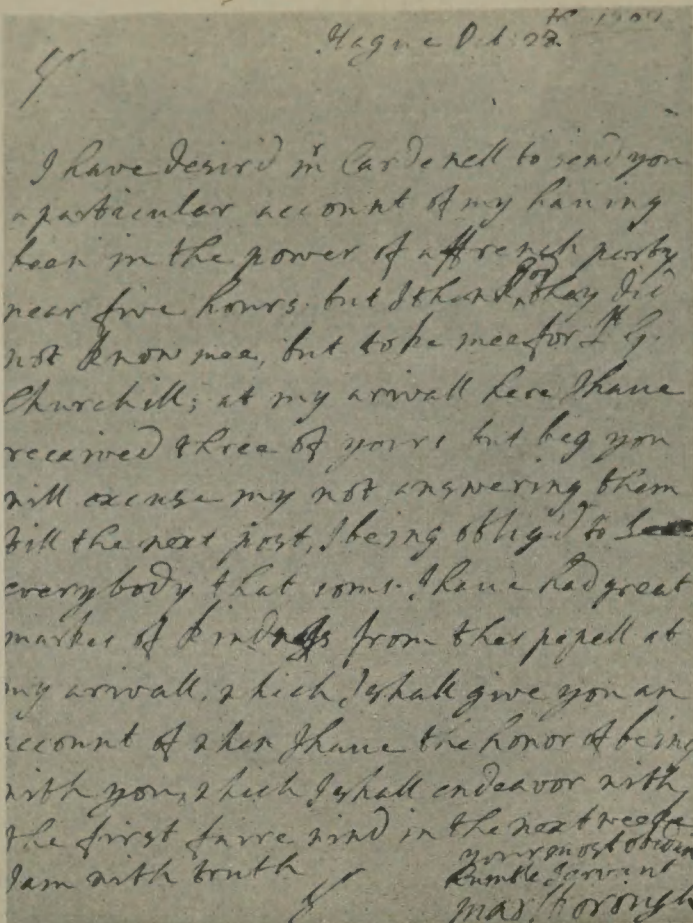 Hague Oct 28th 1702
Sr
I have desir'd mr Cardenell to send you
a particular account of my having
been in the power of a ffrench party
near five hours. but I thank God they did
not know mee, but tooke mee for Lt G.
Churchill; at my arivall here I have
received three of yours but beg you
will excuse my not answering them
till the next post, I being oblig'd to See
everybody that coms. I have had great
markes of kindness from thes pepell at
my arivall, which I shall give you an
account of when I have the honor of being
with you, which I shall endeavor with
the first faire wind in the next weeke
I am with truth
Sr
your most obedient
humble Servant
Marlborough